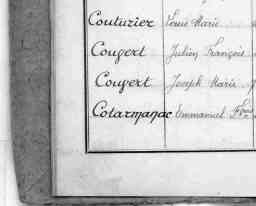 Couturier Louis Marie
Coupert Julien François
Coupert Joseph Marie
Cotarmanac Emmanuel